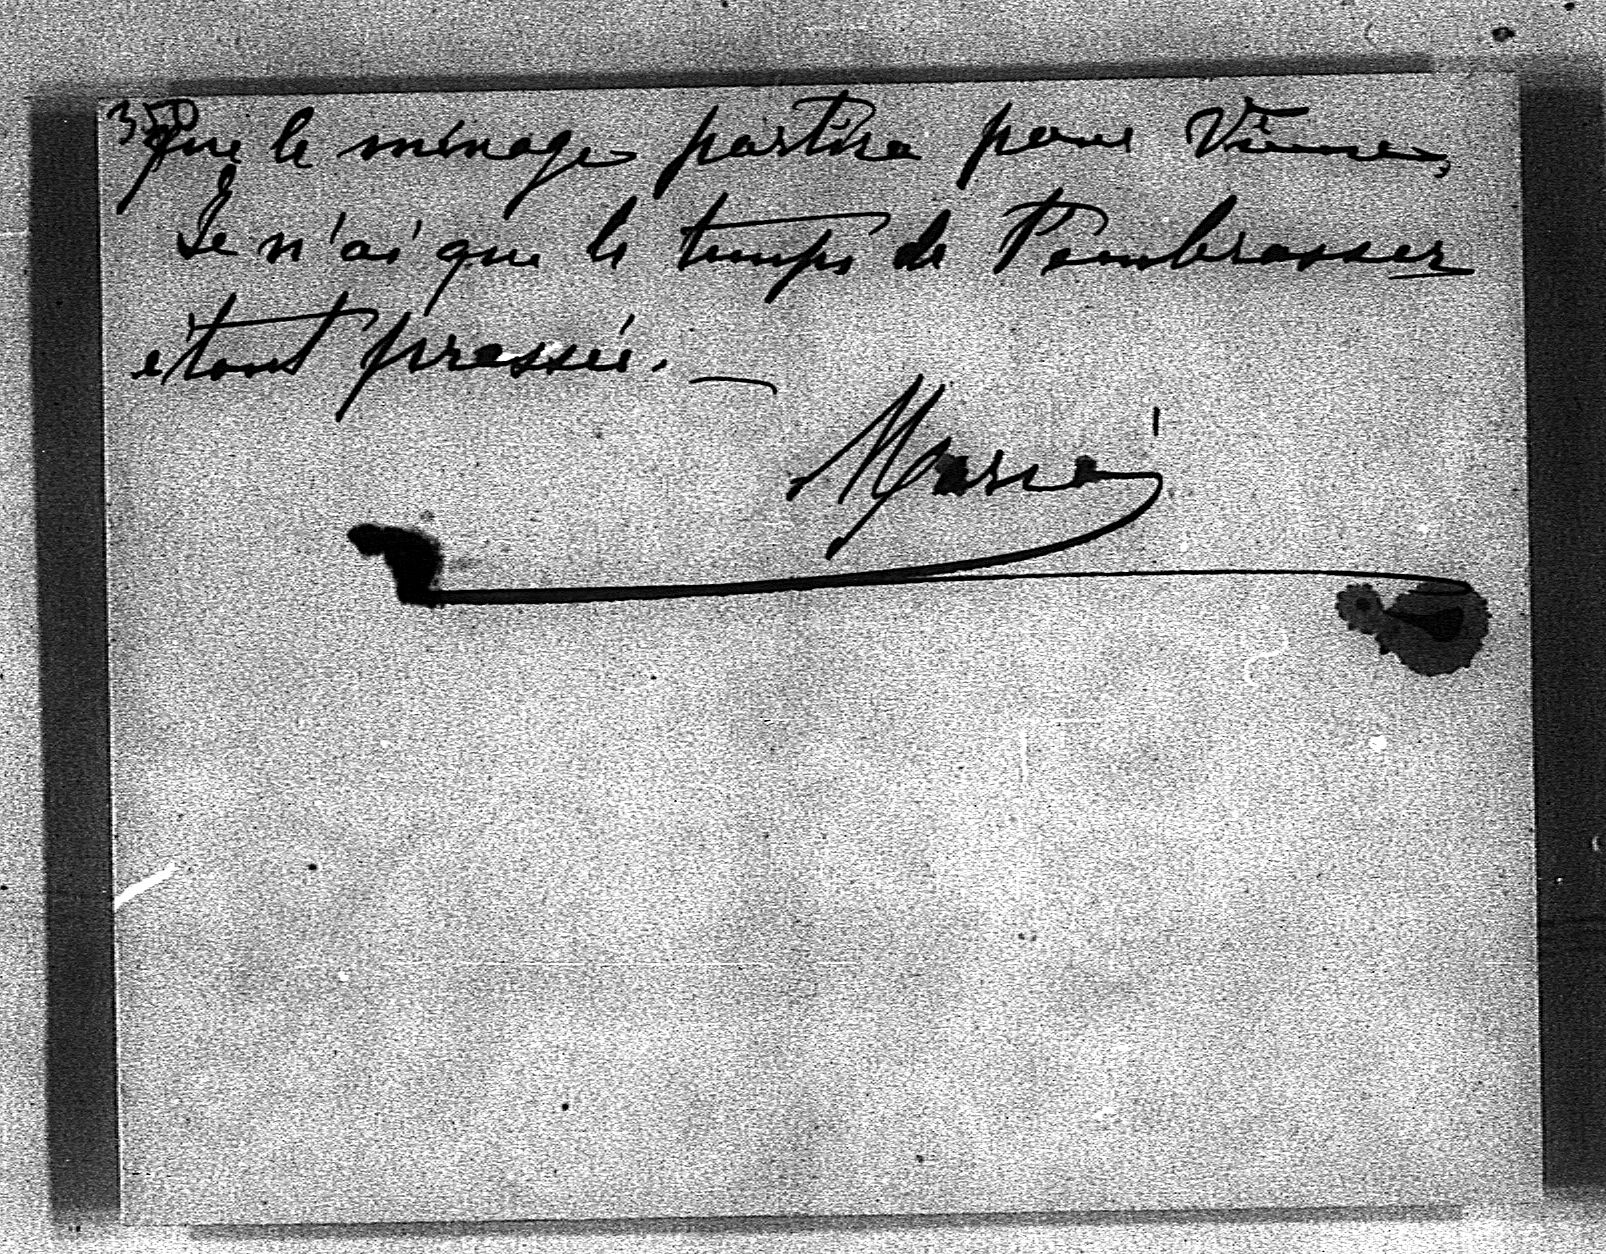 350
que le ménage partira pour Vienne,
Je n'ai que le temps de t'embrasser
étant pressée.
Maria